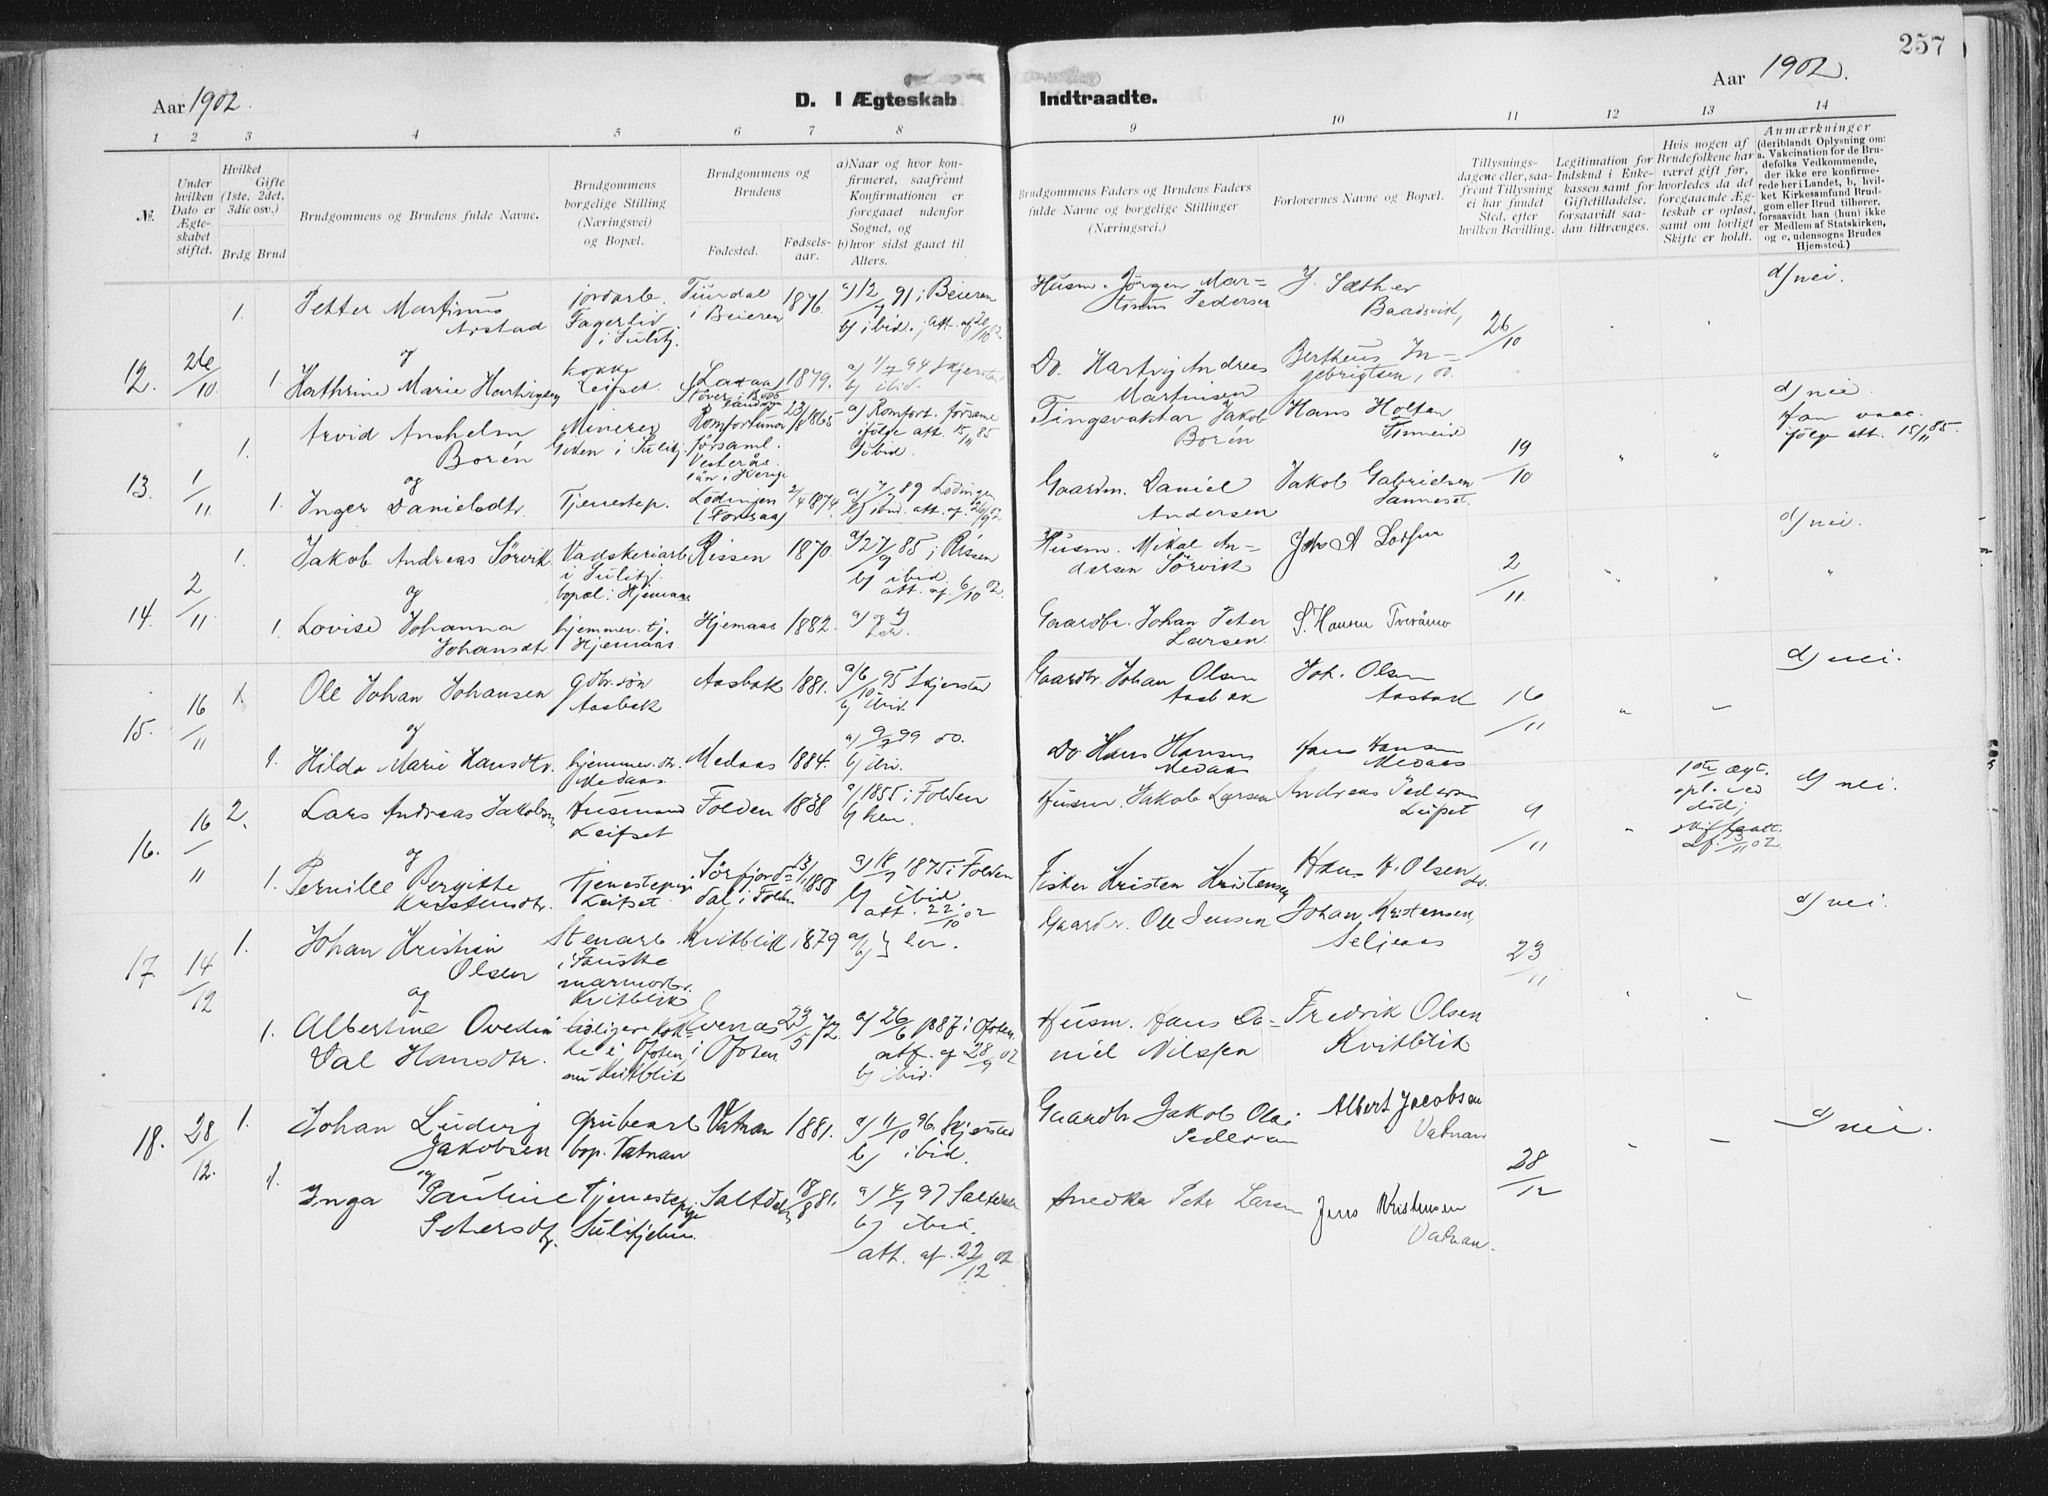 257
Aar 1902.
D. I Ægteskab Indtraadte.
Aar 1902.
1 2 3 4 5 6 7 8 9 10 11 12 13 14
№.
Under hvilken Dato er Ægteskabet stiftet.
Hvilket Gifte (1ste, 2det, 3die osv.)
Brdg Brud
Brudgommens og Brudens fulde Navne.
Brudgommens borgelige Stilling (Næringsvei) og Bopæl.
Brudgommens og Brudens
Fødested.
Fødselsaar.
a) Naar og hvor konfirmeret, saafremt Konfirmationen er foregaaet udenfor Sognet, og
b) hvor sidst gaaet til Alters.
Brudgommens Faders og Brudens Faders fulde Navne og borgelige Stillinger (Næringsvei.)
Forlovernes Navne og Bopæl.
Tillysningsdagene eller, saafremt Tillysning ei har fundet Sted, efter hvilken Bevilling.
Legitimation for Indskud i Enkekassen samt for Giftetilladelse, forsaavidt saadan tiltrænges.
Hvis nogen af Brudefolkene har været gift før, hvorledes da det foregaaende Ægteskab er opløst, samt om lovligt Skifte er holdt.
Anmærkninger (deriblandt Oplysning om: a. Vakcination for de Brudefolks Vedkommende, der ikke ere konfirmerede her i Landet, b, hvilket Kirkesamfund Brudgom eller Brud tilhører, forsaavidt han (hun) ikke er Medlem af Statskirken, og c, udensogns Brudes Hjemsted.)
12. 26/10
1. Petter Martinus Arstad
jordarb. Fagerlid i Sulitj.
i Beieren 1876.
a) 12/7 91 i Beieren
b) ibid., att. af 20/10 02.
Husm. Jörgen Martinus Pedersen
J. Sæther Baadsvik,
26/10
d) nei.
og
1 Kathrine Marie Hartvigsen
kokke Leifset.
1879.
a) 1/7 94 Skjerstad
b) ibid.
Do. Hartvig Andreas Martinsen
Bertheus Ingebrigtsen, do.
13. 1/11
1. Arvid Anshelm Borén
Minerer Giken i Sulitj.
Romfortuna församl. Vesterås län i Sverige
23/8 1865
a) Romfort. församl. ifölge att. 15/11 85
b) ibid.
Tingsvaktar Jakob Borén
Hans Holten Finneid
19/10
d) nei.
Kan vacc. ifölge att. 15/11 85.
og
1. Inger Danielsdtr.
Tjenestep.
Lödingen
2/4 1874.
a) 7/7 89 Lödingen
b) ibid. att. af. 26/9 02
Gaardm. Daniel Andersen
Jakob Gabrielsen
14. 2/11
1. Jakob Andreas Sörvik
Vadskeriarb. i Sulitj. bopæl: Hjemaas
Rissen 1870.
a) 27/9 85 i Rissen
b) ibid. att. af. 6/10 02.
Husm. Mikal Andersen Sörvik
2/11.
d) nei.
og
1. Lovise Johanna Johansdtr
hjemmer. tj. Hjemaas.
Hjemaas 1882.
a) og b) her.
Gaardbr. Johan Peter Larsen.
S. Hansen Tveråmo
15. 16/11
1. Ole Johan Johansen
gdbr. sön Aasbak
Aasbak 1881.
a) 6/10 95 Skjerstad
b) ibid.
Gaardbr. Johan Olsen Aasbak
Joh. Olsen Aasbak
16/11
d) nei.
og
1. Hilda Marie Hansdtr.
hjemmer. dr. Medaas
Medaas 1884.
a) 9/7 99 do.
b) ibi.
Do Hans Hansen Medaas
Hans Hansen Medaas
16. 16/11
2. Lars Andreas Jakobsen
Husmand Leifset
Folden 1838
a) 1855 i Folden
b) her.
Husm. Jakob Larsen
Andreas Pedersen Leifset
9/11
1ste ægt. opl. ved död; skifteatt. af. 13/11 02.
d) nei.
og
1. Pernille Bergitte Kristensdtr.
tjenestepige Leifset
Sörfjorddal i Folden
1858
a) 18/7 1875 i Folden
b) ibid. att. 22/10 02
Fisker Kristen Kristensen
Hans H. Olsen do.
17. 14/12
1. Johan Kristian Olsen
Stenarb. i Fauske marmorbr. Kvitblik
Kvitblik 1879
a) b) } her.
Gaardbr. Ole Jensen
Johan Kristensen, Seljeaas
23/11
d) nei.
og
1. Albertine Ovedia Dal Hansdtr.
tidligere kokke i Ofoten, nu Kvitblik
Evenæs i Ofoten
23/5 72.
a) 26/6 1887 i Ofoten. att. af 28/9 02
b) ibid.
Husm. Hans Daniel Nilssen
Fredrik Olsen Kvitblik
18. 28/12.
1. Johan Ludvig Jakobsen
grubearb. bop. Vatnan
Vatnan 1881.
a) 11/10 96. Skjerstad
b) ibid.
Gaardbr Jakob Olai Pedersen
Albert Jacobsen Vatnan
28/12
d) nei.
og
1. Inga Pauline Petersdtr.
Tjenestepige Sulitjelma
Saltdalen
18/8 81.
a) 4/7 97 Saltdalen
b) ibid.
att. af. 22/12 02
Snedker Peter Larsen
Jens Kristensen Vatnan.